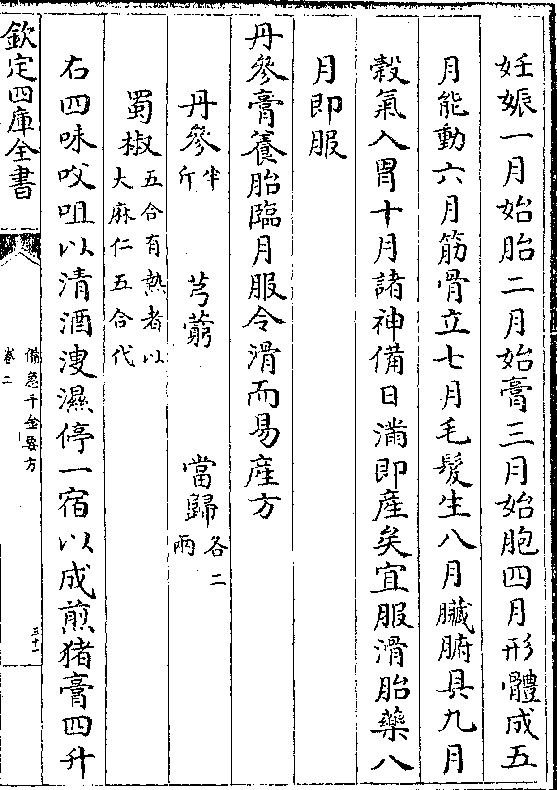 妊娠一月始胎二月始膏三月始胞四月形體成五
月能動六月筋骨立七月毛髮生八月臟腑具九月
榖氣入胃十月諸神備日滿即產矣宜服滑胎藥八
月即服
丹參膏養胎臨月服令滑而易產方
丹參半斤 芎藭 當歸各二兩
蜀椒五合有熱者以大麻仁五合代
右四味㕮咀以清酒溲濕停一宿以成煎猪膏四升
欽定四庫全書
備急千金要方
卷二